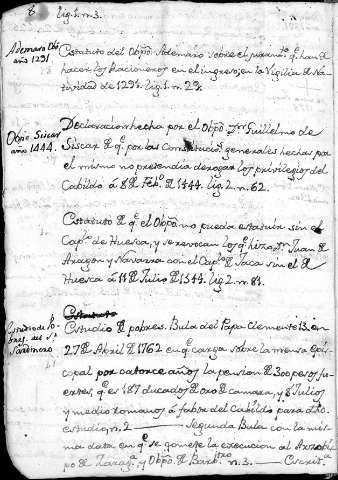 8
lig. 1. n. 3.
Ademaro Obpo
año 1291.
Estatuto del Obpō. Ademaro sobre el juramto. qe. han de
hacer los Racioneros en el ingreso, en la Vigilia de Na-
tividad de 1291. lig. 1. n. 29.
Obpo Siscar
año 1444.
Declaracion hecha por el Obpō. Dn. Guillelmo de
Siscar de qe. por las Constitucs. generales hechas por
el mismo no pretendia derogar los privilegios del
Cabildo á 8 de Febo. de 1444. lig. 2. n. 62.
Estatuto de qe. el Obpō. no pueda estatuir sin el
Capo. de Huesca, y se revocan los qe. hizo Dn. Juan de
Aragon y Navarra con el Capo. de Jaca sin el de
Huesca á 11 de Julio de 1544. lig. 2. n. 81.
Estatuto
Estudio de Po-
bres del Sr.
Sanchez
Estudio de pobres. Bula del Papa Clemente 13. en
27 de Abril de 1762 en qe. carga sobre la mensa Epis-
copal por catorce años la pension de 300 pesos fu-
ertes, qe. es 187 ducados de oro de camara, y 8 Julios
y medio romanos á fabor del Cabildo para dho.
estudio, n. 2 — Segunda Bula con la mis-
ma data en qe. se comete la execucion al Arzobis-
po de Zaraga. y Obpō. de Barbtro. n. 3. — Escrita.